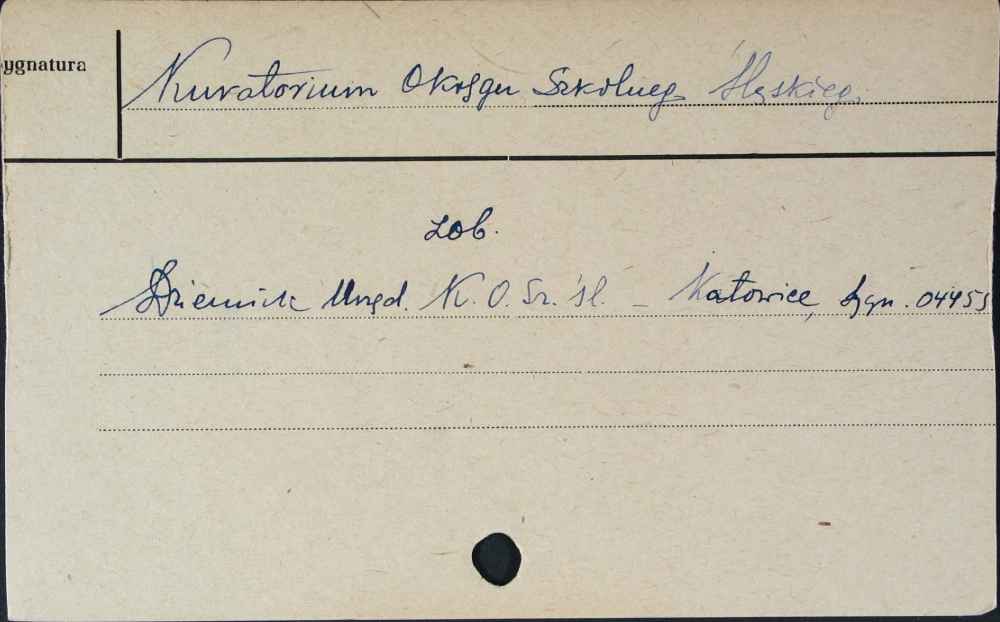 ygnatura
Kuratorium Okręgu Szkolneg Śląskieg.
Zob.
Dziennik Urzęd. K. O. Sz. Śl. – Katowice, Sygn. 04453